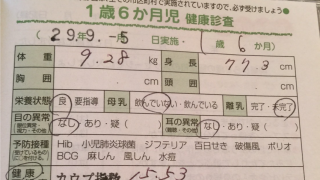 村で実施されていますので、必ず受診しましょう。
1歳6か月児 健康診査
(29年9月5日実施・1歳6か月)
体重 9.28 kg 身長 77.3 cm
胸囲 cm 頭囲 cm
栄養状態 良・要指導 母乳 飲んでいない・飲んでいる 離乳 完了・未完了
目の異常 なし・あり・疑( ) 耳の異常 なし・あり・疑(
予防接種 Hib 小児肺炎球菌 ジフテリア 百日せき 破傷風 ポリオ
BCG 麻しん 風しん 水痘
健康 カウプ指数 15.53